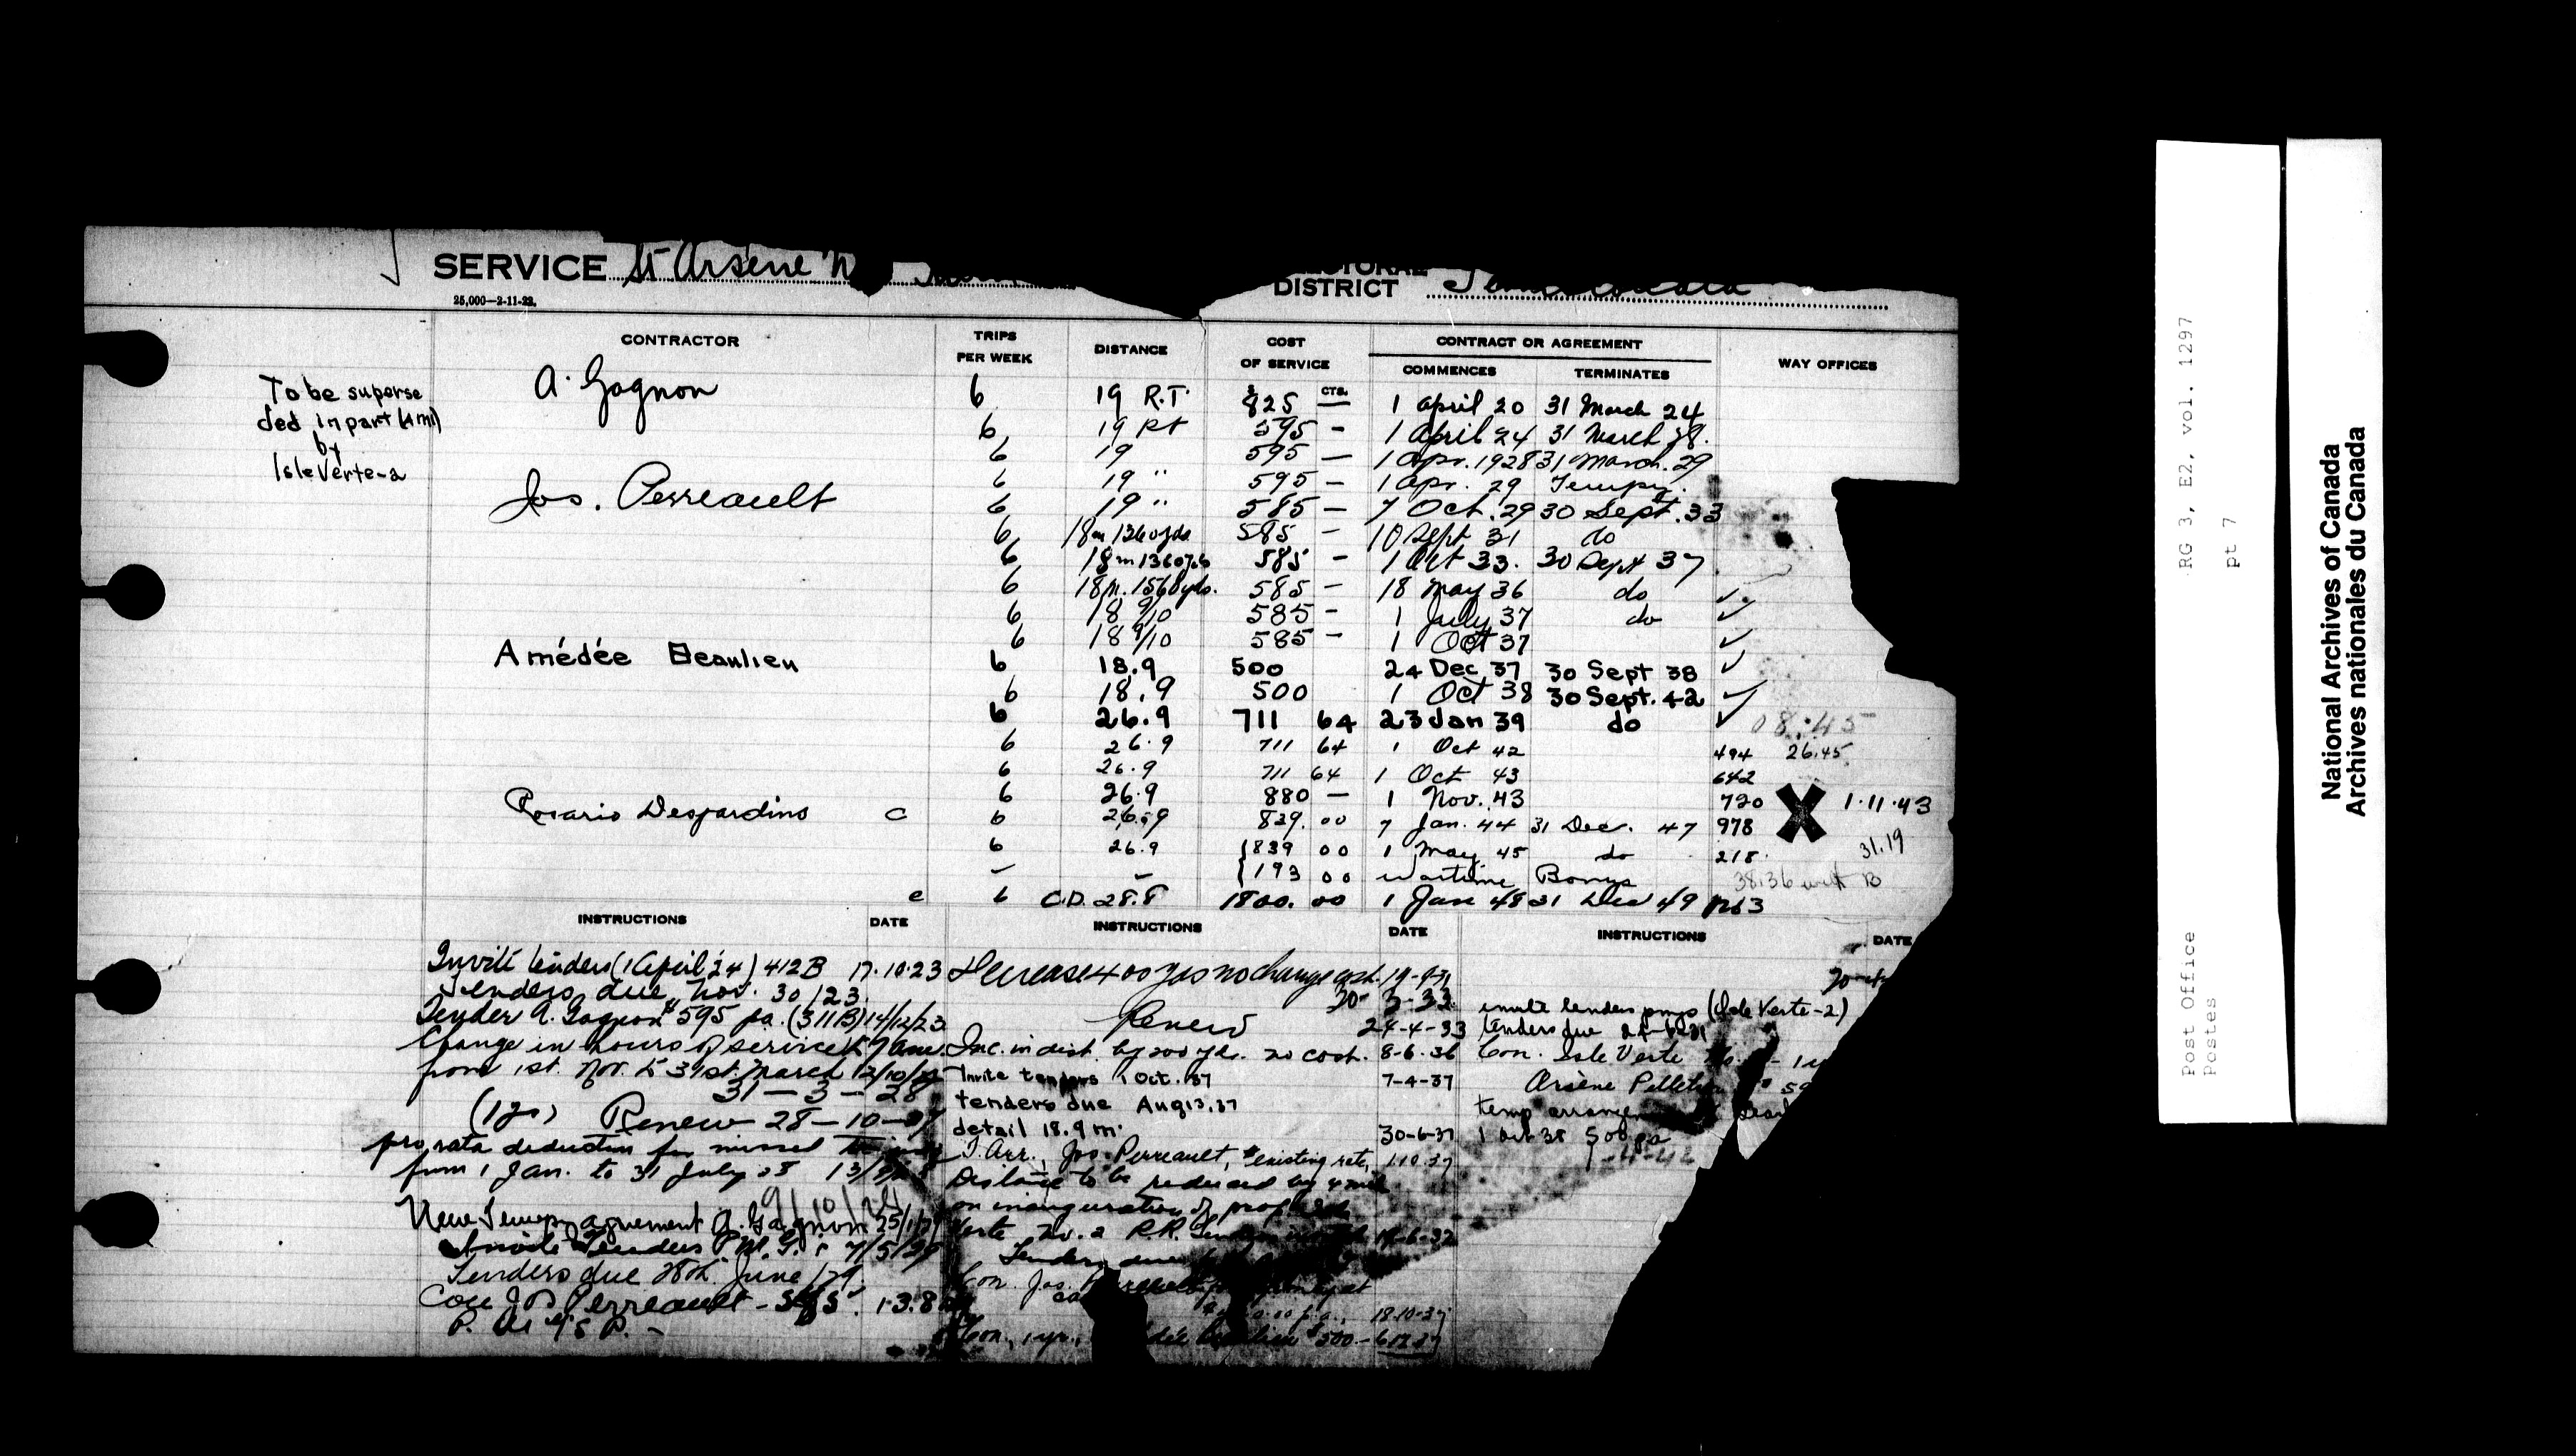 SERVICE St Arsène
DISTRICT
25,000—2-11-22.
CONTRACTOR TRIPS PER WEEK DISTANCE COST OF SERVICE CONTRACT OR AGREEMENT WAY OFFICES
COMMENCES TERMINATES
To be superse
ded in part (4 mi)
by
Isle Verte-a
A. Gagnon 6 19 R.T. $825 CTS. — 1 April 20 31 March 24
6 19 Rt 595 - 1 April 24 31 March 28.
6 19 595 — 1 Apr. 1928 31 March. 29
6 19 " 595 - 1 Apr. 29 Tempy.
Jos. Perreault 6 19 " 585 — 7 Oct. 29 30 Sept. 33
6 18m 1360 yds 585 - 10 Sept 31 do
6 18m 1360 yds 585 - 1 Oct 33. 30 Sept 37
6 18m. 1560 yds. 585 - 18 May 36 do ✓
6 18 9/10 585 - 1 July 37 do ✓
6 18 9/10 585 - 1 Oct 37 ✓
Amédée Beaulieu 6 18.9 500 24 Dec 37 30 Sept 38 ✓
6 18.9 500 1 Oct 38 30 Sept. 42 ✓
6 26.9 711 64 23 Jan 39 do ✓ 08.45
6 26.9 711 64 1 Oct 42 494 26.45
6 26.9 711 64 1 Oct 43 642
6 26.9 880 — 1 Nov. 43 720 X 1.11.43
Rosario Desjardins c 6 26.9 839.00 7 Jan. 44 31 Dec. 47 978
6 26.9 {839 00 1 May 45 do 218 31.19
- - {193 00 Wartime Bonus 38.36 with B
e 6 C.D. 28.8 1800.00 1 Jan 48 31 Dec 49 1263
INSTRUCTIONS DATE INSTRUCTIONS DATE INSTRUCTIONS DATE
Invite tenders (1 April 24) 412B 17.10.23
Tenders due Nov. 30/23.
Tender A. Gagnon $595 pa. (311B) 14/12/23
Change in hours of service 7 am.
from 1st. Nov. to 31st. March
31—3—28
(1 yr) Renew 28-10-
pro rata deduction for missed
from 1 Jan. to 31 July 28
9/10/24
New Tempy agreement A. Gagnon 25/1/29
Invite Tenders P.M.G. 7/5/29
Tenders due 28th. June/29.
Con Jos Perreault - 585.
Decrease 400 yds no change cost.
30-3-33
Renew 24-4-33
Inc. in dist. by 200 yds. no cost. 8-6-36
Invite tenders 1 Oct. 37 7-4-37
tenders due Aug 13.37
detail 18.9 m. 30-6-37
T. Arr., Jos. Perreault, existing rate, 1.10.37
Distance to be reduced by 4 mil
on inauguration of prop
Verte No. 2 R.R.
Tenders due
Con. Jos.
18.10.37
Con., 1 yr., Beaulieu $500.-
invite tenders pmg (Isle Verte-2)
tenders due
Con. Isle Verte
Arsène Pelletier
temp
1 Oct 38 500 pa
RG 3, E2, vol. 1297
pt 7
Post Office
Postes
National Archives of Canada
Archives nationales du Canada